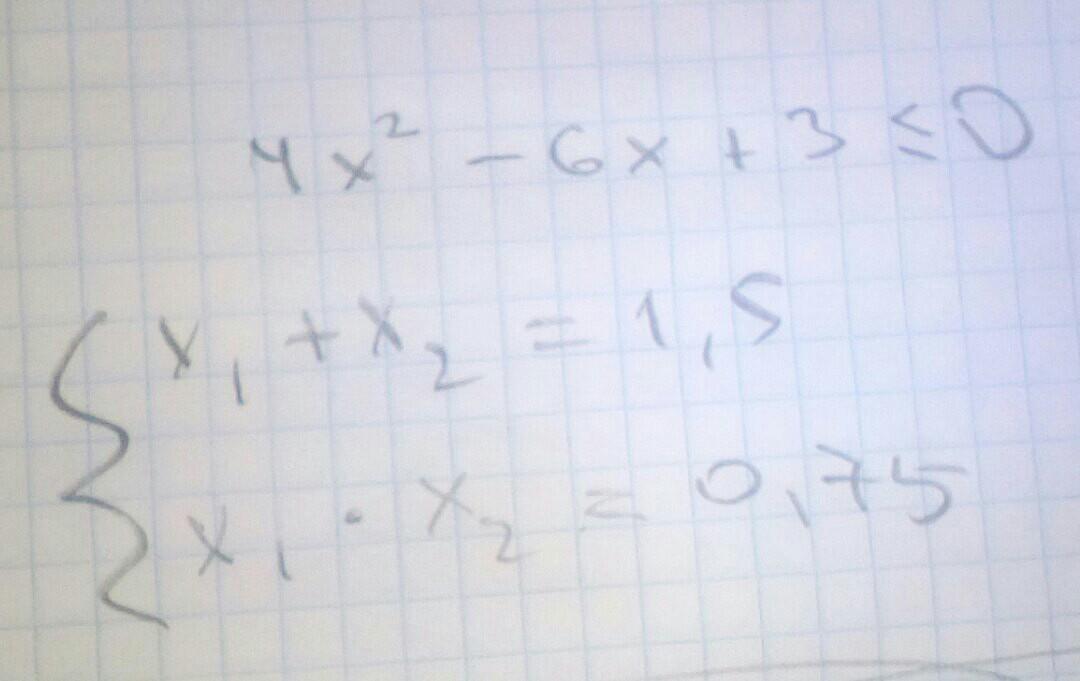 4x² - 6x + 3 ≤ 0
x₁ + x₂ = 1,5
x₁ · x₂ = 0,75